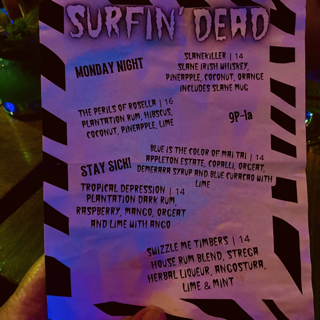 SURFIN' DEAD
MONDAY NIGHT
SLANEKILLER | 14
SLANE IRISH WHISKEY,
PINEAPPLE, COCONUT, ORANGE
INCLUDES SLANE MUG
THE PERILS OF ROSELLA | 16
PLANTATION RUM, HIBISCUS,
COCONUT, PINEAPPLE, LIME
9P-1A
BLUE IS THE COLOR OF MAI TAI | 14
APPLETON ESTATE, COPALLI, ORGEAT,
DEMERARA SYRUP AND BLUE CURACAO WITH
LIME
STAY SICK!
TROPICAL DEPRESSION | 14
PLANTATION DARK RUM,
RASPBERRY, MANGO, ORGEAT
AND LIME WITH ANGO
SWIZZLE ME TIMBERS | 14
HOUSE RUM BLEND, STREGA
HERBAL LIQUEUR, ANGOSTURA,
LIME & MINT